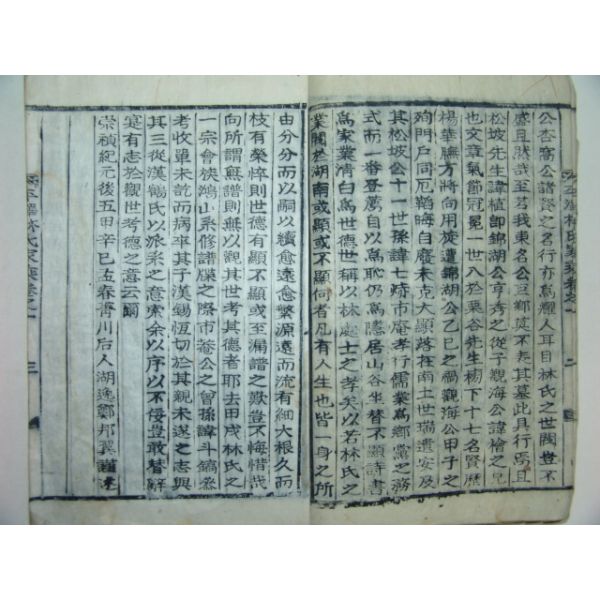 公杏窩公諸隆之名行亦爲耀人耳目林氏之世閥豈不
盛且然哉至若我東名公巨鄉莫不表其墓此具行焉且
松坡先生諱植卽錦湖公亨秀之從子觀海公諱檜之兄
也文章氣節冠冕一世八於栗谷先生榜下十七名賢歷
楊華職方將向用旋遭錦湖公乙巳之禍觀海公甲子之
殉門戶同厄韜晦自廢未克大顯落在南土世璃遺安及
其松坡公十一世孫諱七 市庵孝行儒業爲鄉黨之務
式而一番登薦自以爲恥仍爲隱居山谷坐替不顯詩書
爲家業淸白爲世德世稱以林處士之孝矣以若林氏之
業閥於湖南或顯或不顯何者凡有人生也皆一身之所
由分分而以嗣以續愈遠愈繁源遠而流有細大根久而
枝有榮悴則世德有顯不顯或至漏譜之歎豈不悔惜哉
向所謂無譜則無以觀其世考其德者耶去甲戌林氏之
一宗會族鴻山系修譜牒之際市菴公之曾孫諱斗鎬叅
考收單未訖而病卒其子漢錫恆切於其親未遂之志與
其三從漢鶴氏以派系之意索余以序以不侫豈敢替解
寔有志於觀世考德之意云爾
崇禎紀元後五田辛巳孟春菁川后人湖逸鄭邦翼謹述
平澤林氏家乘卷之一
二
三